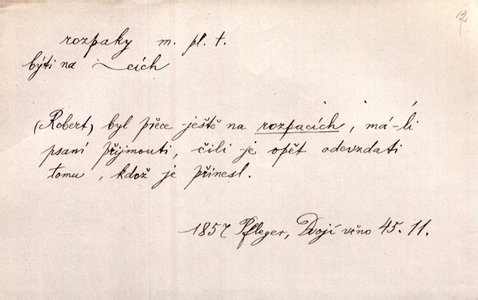 rozpaky m. pl. t.
býti na ~cích
(Robert) byl přece ještě na rozpacích, má-li
psaní přijmouti, čili je opět odevzdati
tomu, kdož je přinesl.
1857 Pfleger, Dvojí věno 45. 11.